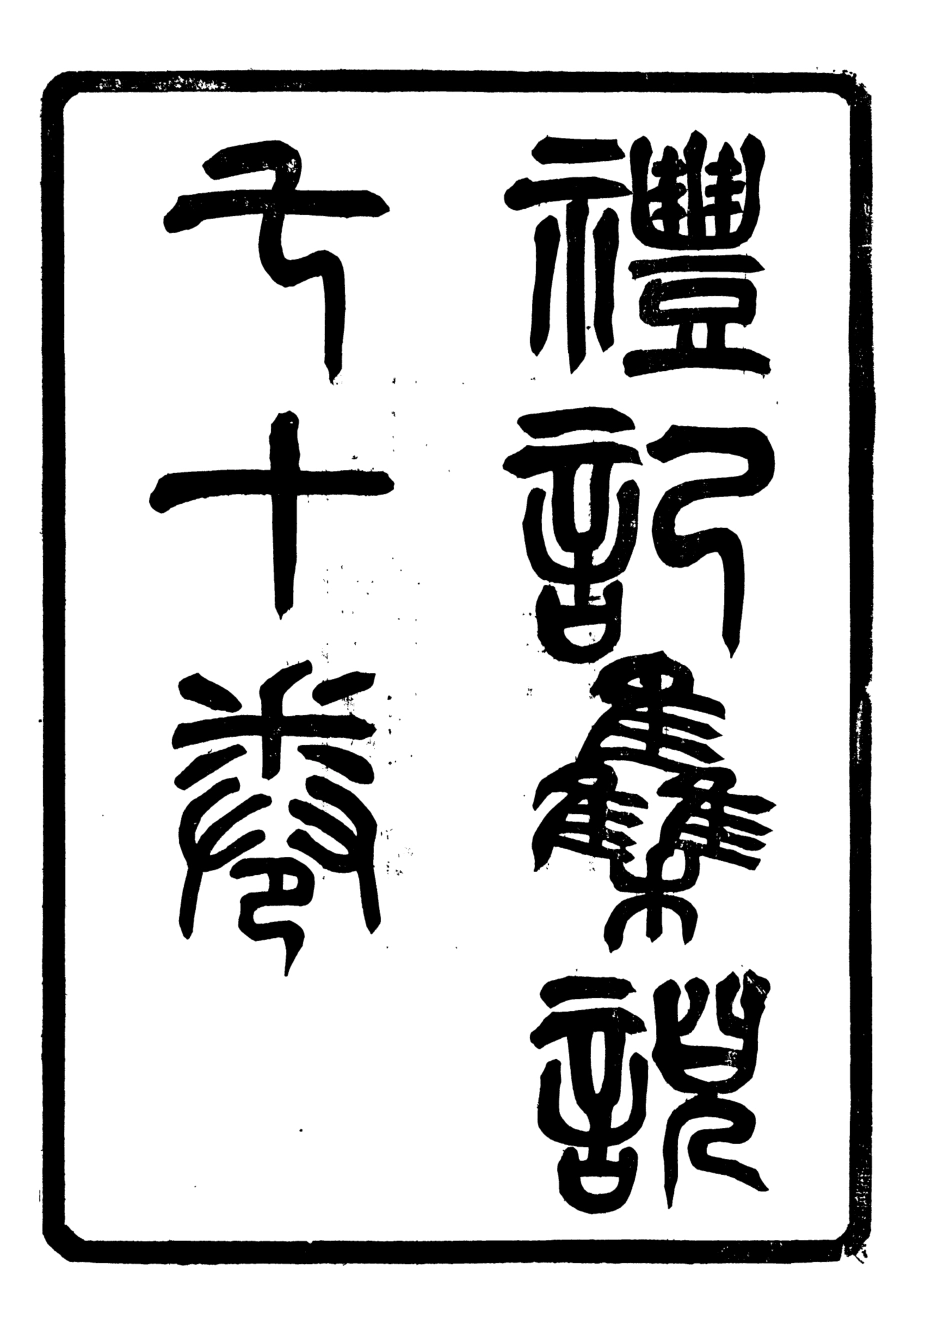 禮記雧說
七十卷